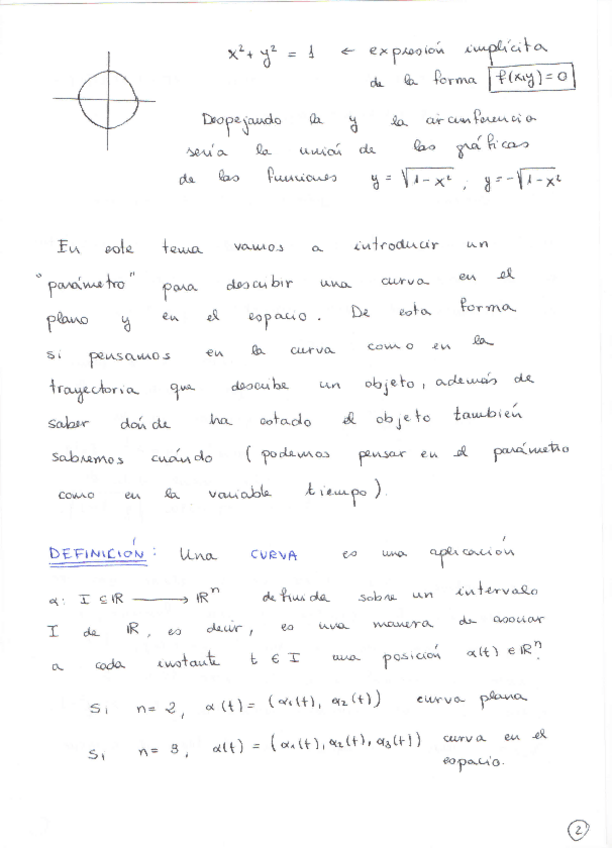 x² + y² = 1 ← expresión implícita
de la forma f(x,y)=0
Despejando la y la circunferencia
sería la unión de las gráficas
de las funciones y = √1-x² ; y = -√1-x²
En este tema vamos a introducir un
"parámetro" para describir una curva en el
plano y en el espacio. De esta forma
si pensamos en la curva como en la
trayectoria que describe un objeto, además de
saber dónde ha estado el objeto también
sabremos cuándo (podemos pensar en el parámetro
como en la variable tiempo).
DEFINICIÓN: Una CURVA es una aplicación
α: I ⊆ ℝ ⟶ ℝⁿ definida sobre un intervalo
I de ℝ, es decir, es una manera de asociar
a cada instante t ∈ I una posición α(t) ∈ ℝⁿ.
Si n = 2, α(t) = (α₁(t), α₂(t)) curva plana
Si n = 3, α(t) = (α₁(t), α₂(t), α₃(t)) curva en el
espacio.
2